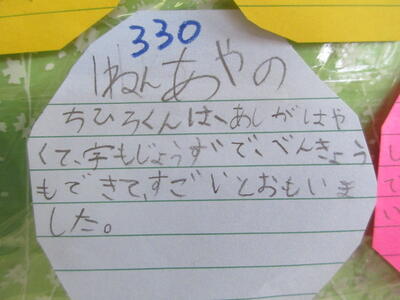 330
1ねんあやの
ちひろくんは、あしがはや
くて、字もじょうずで、べんきょう
もできて、すごいとおもいま
した。